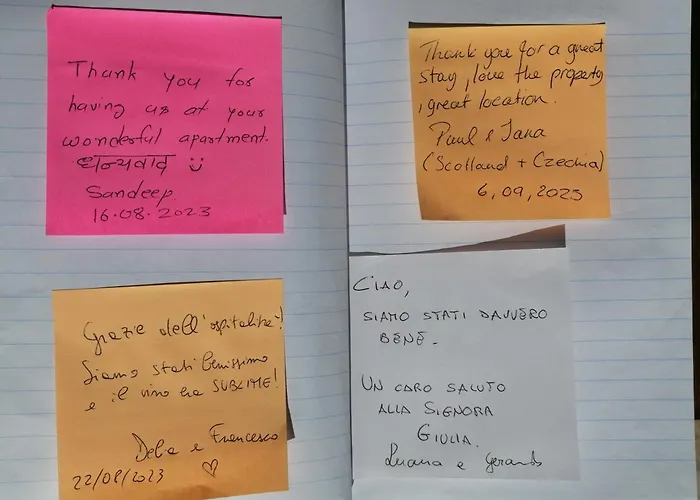 Thank you for
having us at your
wonderful apartment.
धन्यवाद
Sandeep
16.08.2023
Thank you for a great
stay, love the property
, great location.
Paul e Jana
(Scotland + Czechia)
6,09,2023
Grazie dell'ospitalità!
Siamo stati benissimo
e il vino era SUBLIME!
e Francesco
22/08/2023
CIAO,
SIAMO STATI DAVVERO
BENE.
UN CARO SALUTO
ALLA SIGNORA
GIULIA.
Luana e